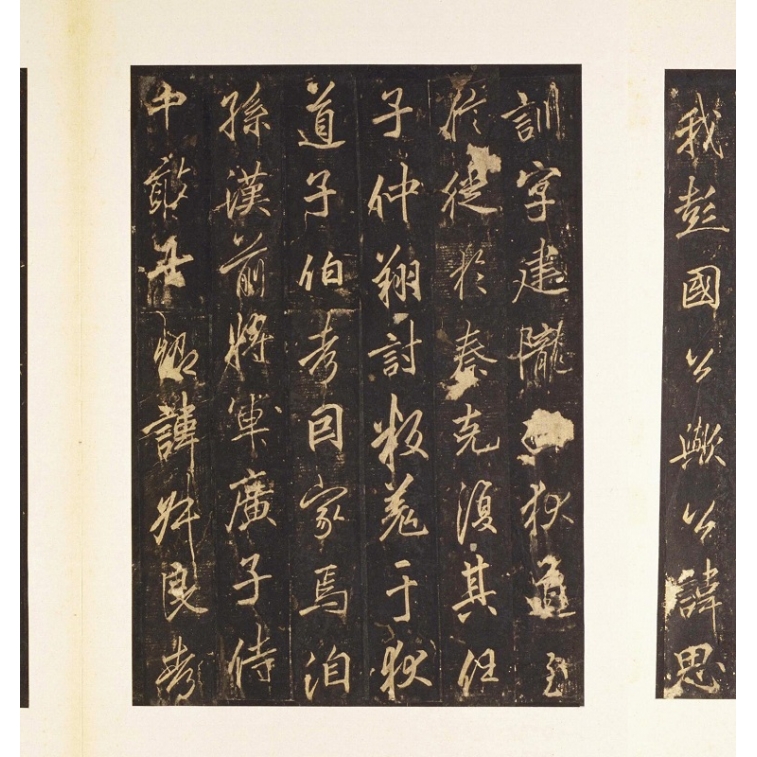 我彭國公歟公諱思
訓字建隴狄道至
於徙於秦克復其任
子仲翔討叛羌于狄
道子伯考因家焉洎
孫漢前將軍廣子侍
中敢諱叔良考